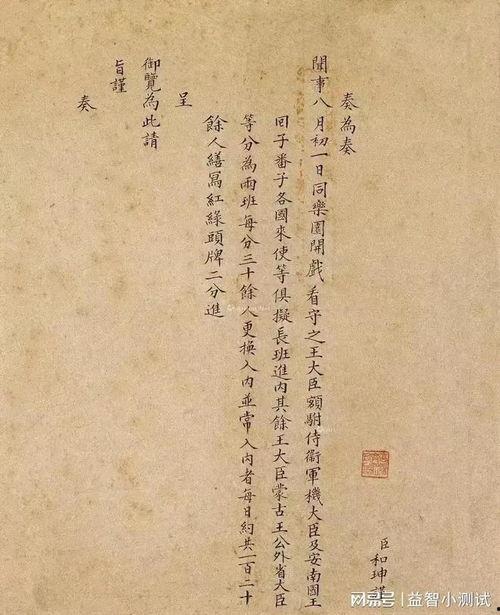 臣和珅謹
奏為奏
聞事八月初一日同樂園開戲看守之王大臣額駙侍衛軍機大臣及安南國王
回子番子各國來使等俱擬長班進內其餘王大臣蒙古王公外省大臣
等分為兩班每分三十餘人更換入內並常入內者每日約共一百二十
餘人繕寫紅綠頭牌二分進
呈
御覽為此請
旨謹
奏
搜狐号@益智小测试